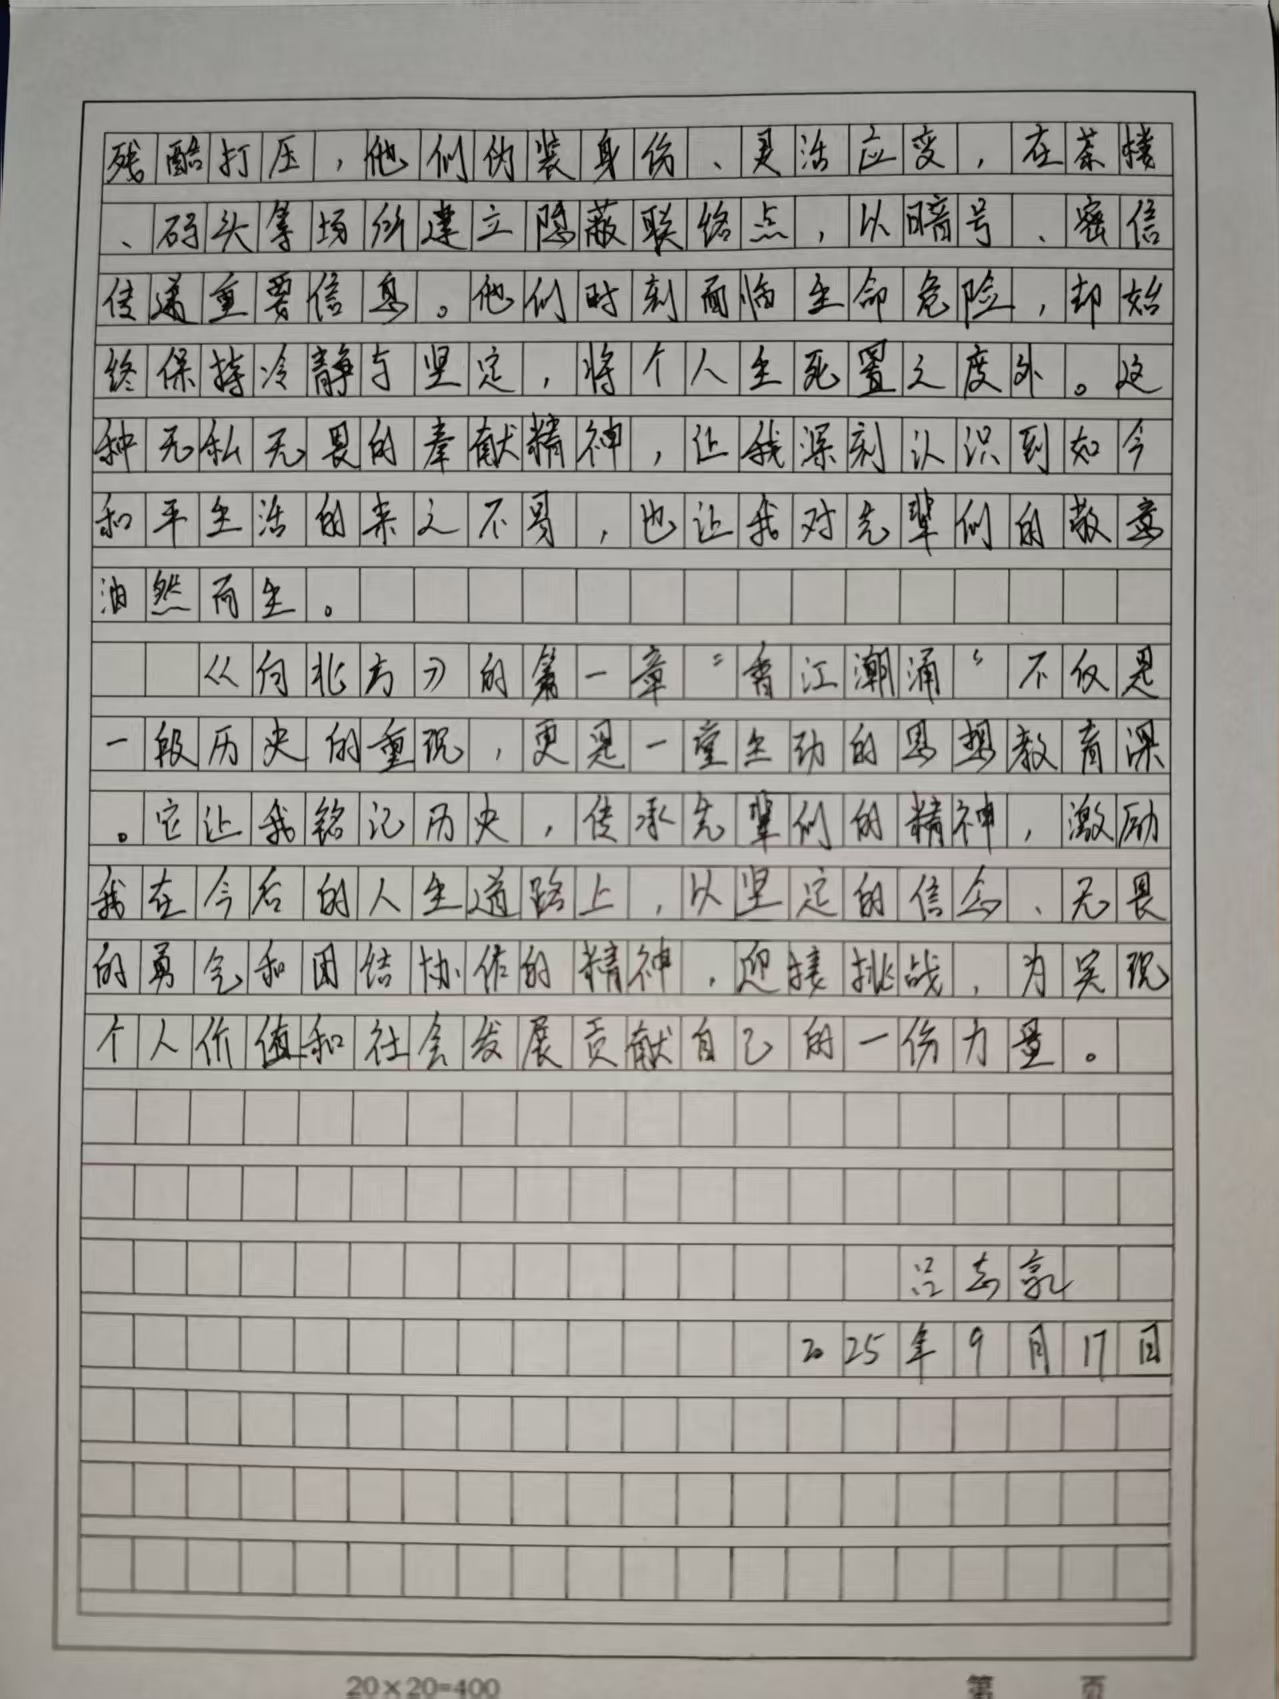 残酷打压，他们伪装身份、灵活应变，在茶楼
、码头等场所建立隐蔽联络点，以暗号、密信
传递重要信息。他们时刻面临生命危险，却始
终保持冷静与坚定，将个人生死置之度外。这
种无私无畏的奉献精神，让我深刻认识到如今
和平生活的来之不易，也让我对先辈们的敬意
油然而生。
《向北方》的第一章“香江潮涌”不仅是
一段历史的重现，更是一堂生动的思想教育课
。它让我铭记历史，传承先辈们的精神，激励
我在今后的人生道路上，以坚定的信念、无畏
的勇气和团结协作的精神，迎接挑战，为实现
个人价值和社会发展贡献自己的一份力量。
吕志
2025年9月17日
20×20=400 第 页